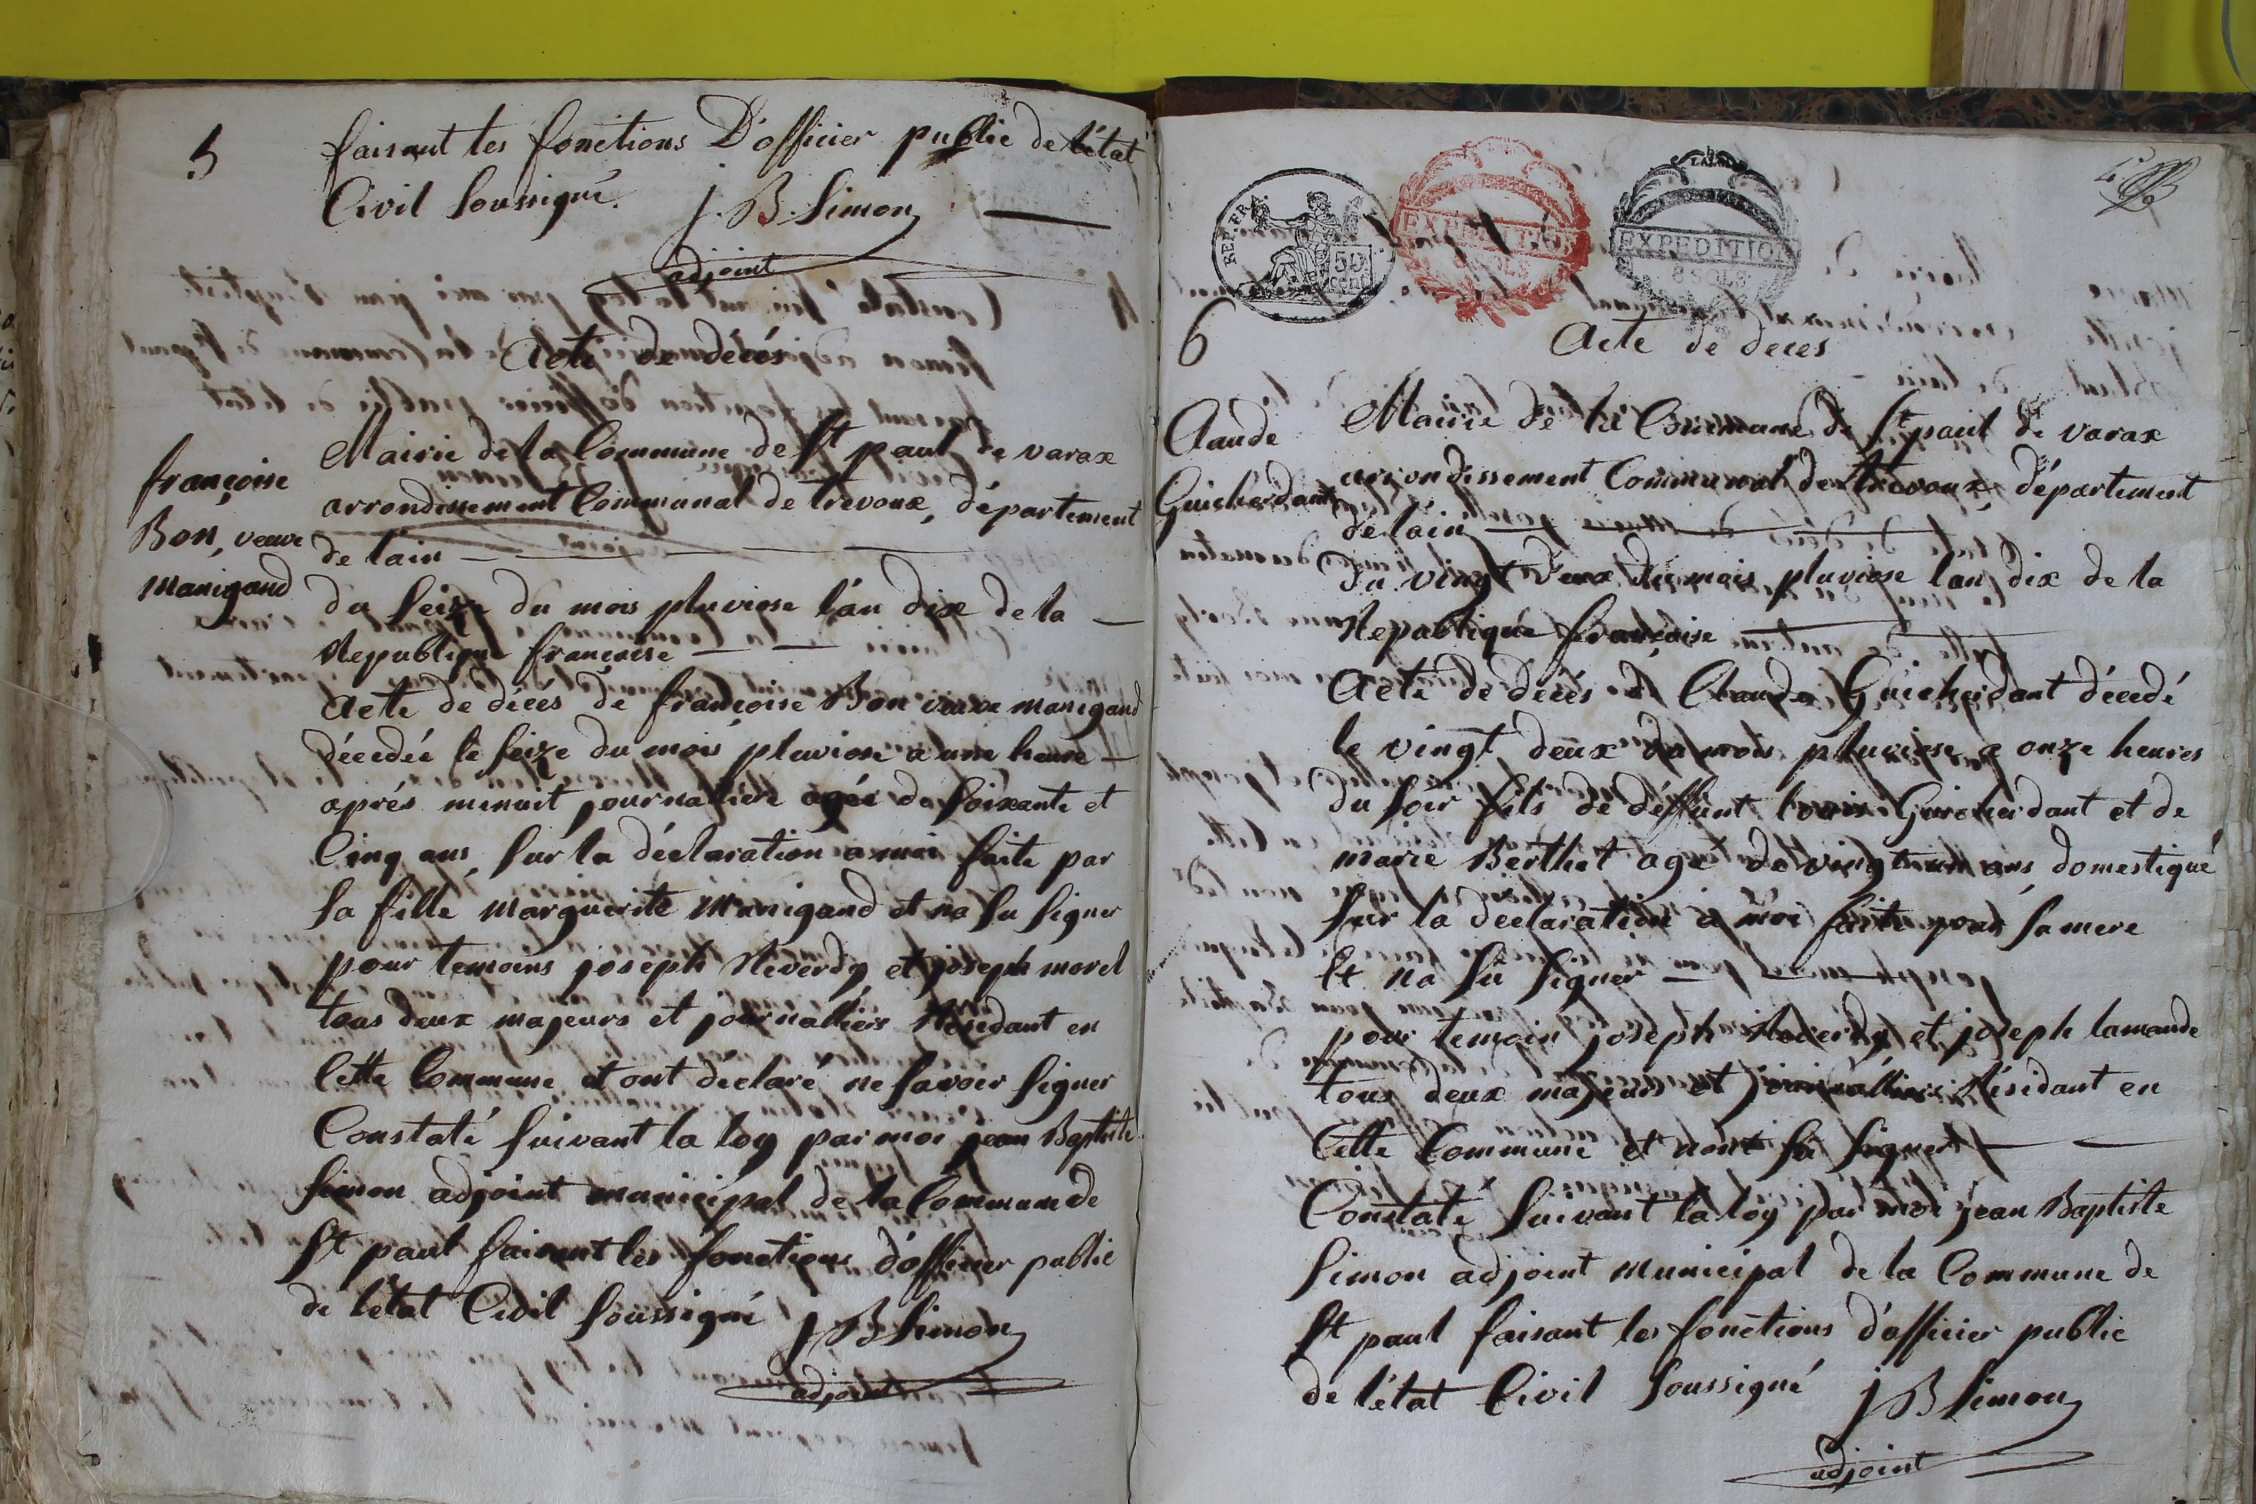 5
faisant les fonctions D'officier public de l'état
Civil soussigné. J. B. Simon
adjoint
acte de décés
françoise
Bon, veuve
manigand
Mairie de la Commune de St paul de varax
arrondissement Communal de trevoux, département
de l'ain
du seize du mois pluviose l'an dix de la
Republique françoise
acte de décés de françoise Bon veuve manigand
décedée le seize du mois pluviose a une heure
aprés menuit journalliere agée de soixante et
Cinq ans, sur la déclaration a moi faite par
sa fille marguerite manigand et na su signer
pour temoins joseph Reverdy et joseph morel
tous deux majeurs et journalliers Résidant en
Cette Commune et ont déclaré ne savoir signer
Constaté suivant la loy par moi jean Baptiste
simon adjoint municipal de la Commune de
St paul faisant les fonctions d'officier public
de l'état Civil soussigné J B Simon
adjoint
REP. FRA.
50
cent
EXPEDITION
8 SOLS
EXPEDITION
8 SOLS
6
acte de deces
Claude
Guicherdant
Mairie de la Commune de St paul de varax
arrondissement Communal de trevoux, département
de l'ain
du vingt deux du mois pluviose l'an dix de la
Republique françoise
acte de décés de Claude Guicherdant décedé
le vingt deux du mois pluviose a onze heures
du soir fils de deffunt louis Guicherdant et de
marie Berthet agé de vingt un ans domestique
sur la declaration a moi faite par sa mere
et na su signer
pour temoin joseph Reverdy et joseph lamande
tous deux majeurs et journalliers Résidant en
Cette Commune et n'ont su signer
Constaté suivant la loy par moi jean Baptiste
simon adjoint municipal de la Commune de
St paul faisant les fonctions d'officier public
de l'état Civil soussigné J B Simon
adjoint